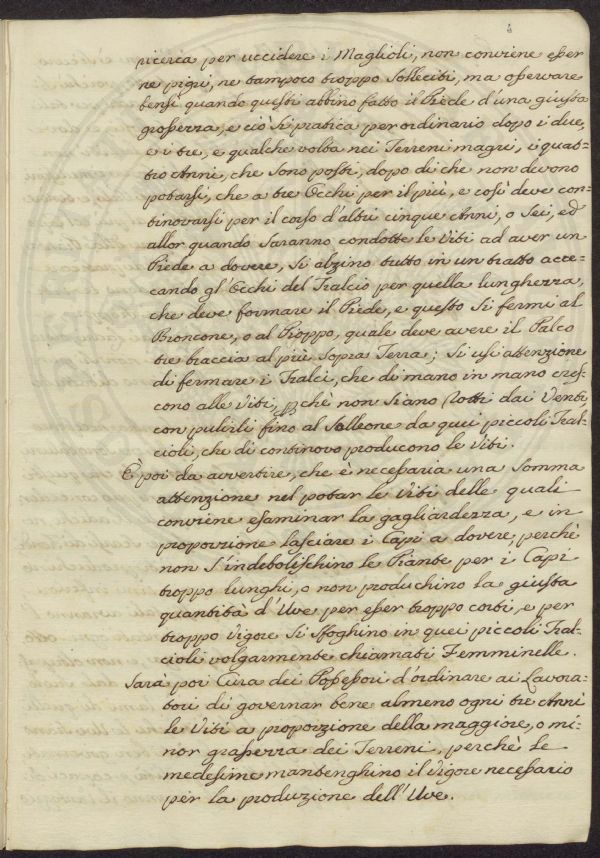 ricerca per uccidere i Maglioli, non conviene esser
ne pigri, ne tampoco troppo solleciti, ma osservare
bensì quando questi abbino fatto il Piede d'una giusta
grossezza, e ciò si pratica per ordinario dopo i due,
e i tre, e qualche volta nei Terreni magri, i quat-
tro Anni, che sono posti, dopo di che non devono
potarsi, che a tre Occhi per il più, e così deve con-
tinovarsi per il corso d'altri cinque Anni, o Sei, ed
allor quando saranno condotte le Viti ad aver un
Piede a dovere, si alzino tutto in un tratto acce-
cando gl'Occhi del Tralcio per quella lunghezza,
che deve formare il Piede, e questo si fermi al
Broncone, o al Pioppo, quale deve avere il Palco
tre braccia al più sopra Terra; si usi attenzione
di fermare i Tralci, che di mano in mano cres-
cono alle Viti, pchè non siano rotti dai Venti
con pulirli fino al Solleone da quei piccoli Tral-
cioli, che di continovo producono le Viti.
È poi da avvertire, che è necessaria una somma
attenzione nel potar le Viti delle quali
conviene esaminar la gagliardezza, e in
proporzione lasciare i Capi a dovere, perchè
non s'indebolischino le Piante per i Capi
troppo lunghi, o non produchino la giusta
quantità d'Uve per esser troppo corti, e per
troppo vigore si sfoghino in quei piccoli Tral-
cioli volgarmente chiamati Femminelle.
Sarà poi Cura dei Possessori d'ordinare ai Lavora-
tori di governar bene almeno ogni tre Anni
le Viti a proporzione della maggiore, o mi-
nor grassezza dei Terreni, perchè le
medesime mantenghino il vigore necessario
per la produzione dell'Uve.